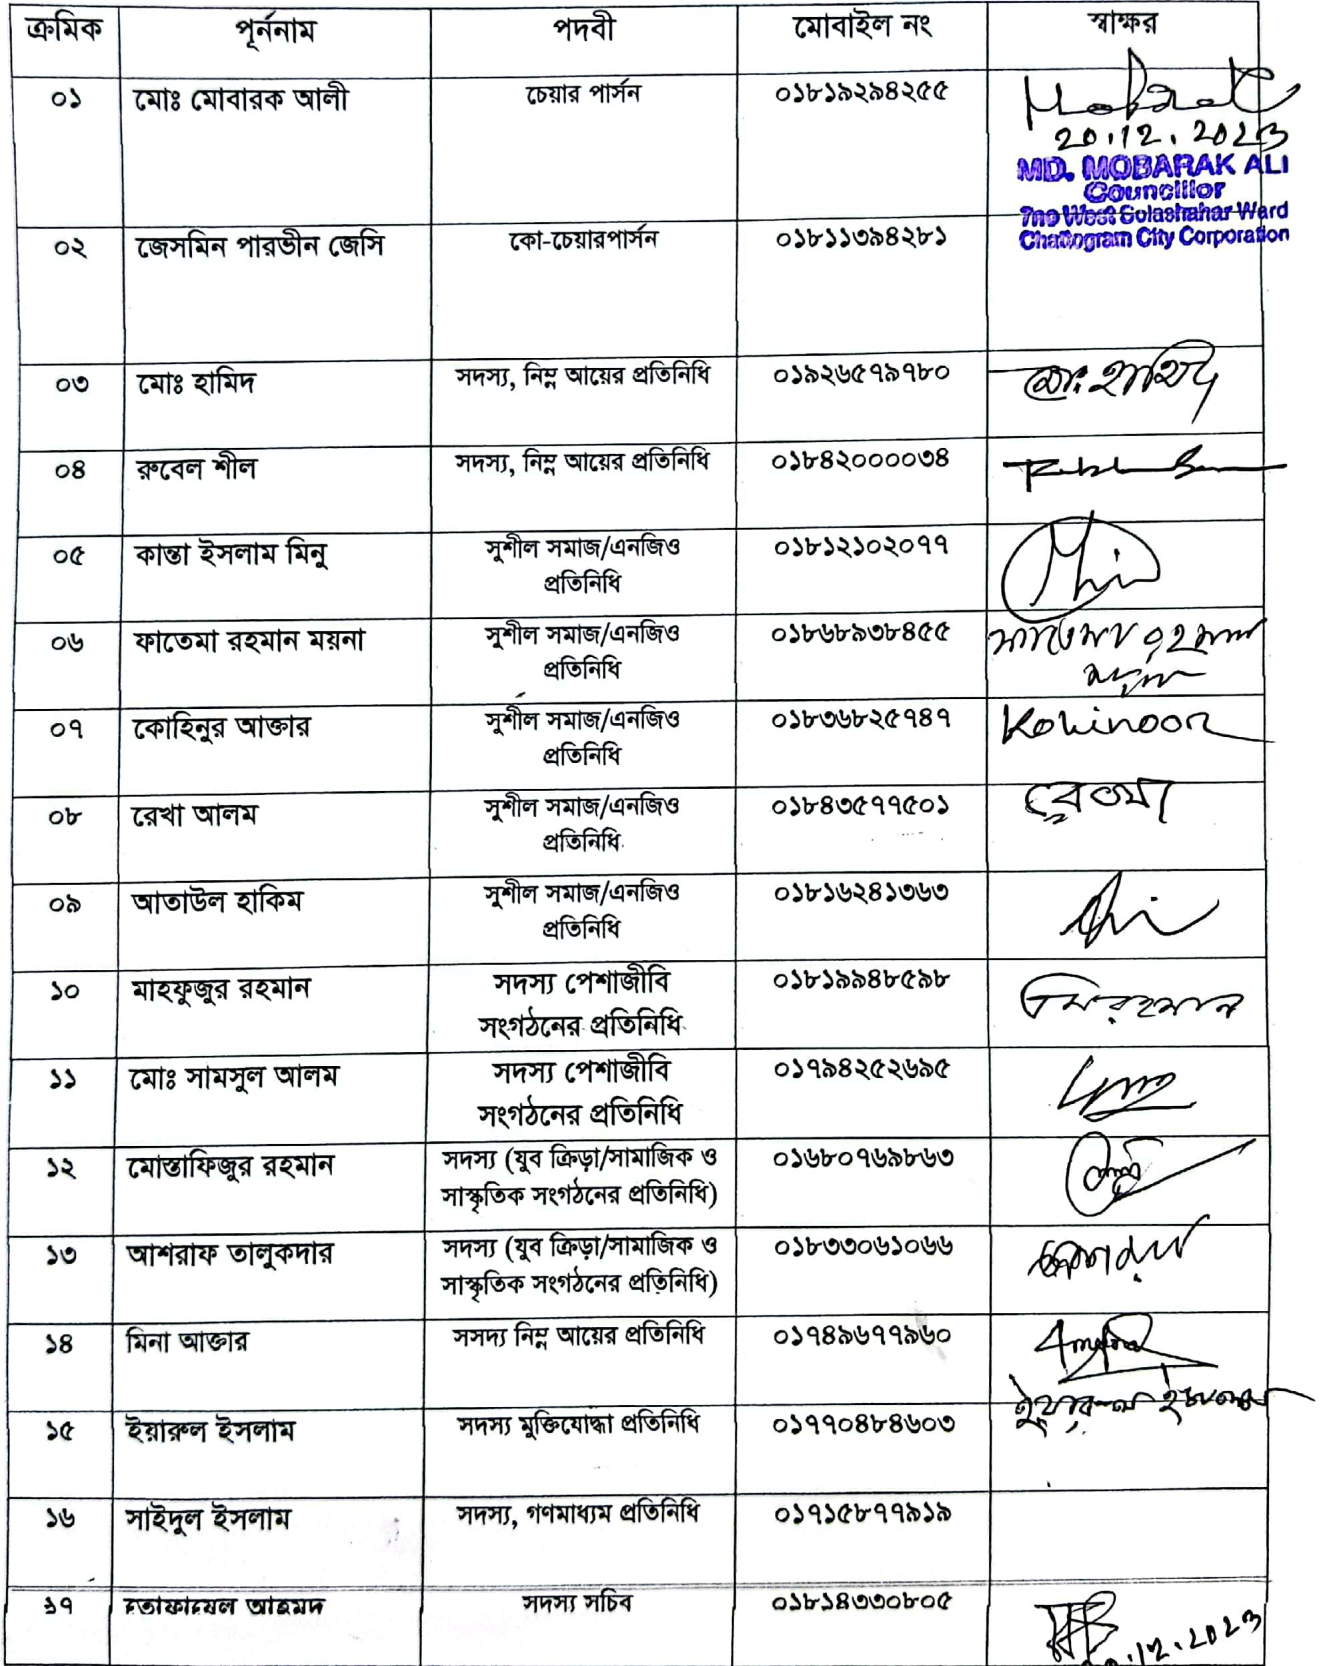 ক্রমিক পূর্ননাম পদবী মোবাইল নং স্বাক্ষর
০১ মোঃ মোবারক আলী চেয়ার পার্সন ০১৮১৯২৯৪২৫৫ Mobarak
20.12.2023
MD. MOBARAK ALI
Councillor
7no West Solashahar Ward
Chattogram City Corporation
০২ জেসমিন পারভীন জেসি কো-চেয়ারপার্সন ০১৮১১৩৯৪২৮১
০৩ মোঃ হামিদ সদস্য, নিম্ন আয়ের প্রতিনিধি ০১৯২৬৫৭৯৭৮০ মোঃ হামিদ
০৪ রুবেল শীল সদস্য, নিম্ন আয়ের প্রতিনিধি ০১৮৪২০০০০৩৪
০৫ কান্তা ইসলাম মিনু সুশীল সমাজ/এনজিও ০১৮১২১০২০৭৭
প্রতিনিধি
০৬ ফাতেমা রহমান ময়না সুশীল সমাজ/এনজিও ০১৮৬৮৯৩৮৪৫৫ ফাতেমা রহমান
প্রতিনিধি ময়না
০৭ কোহিনুর আক্তার সুশীল সমাজ/এনজিও ০১৮৩৬৮২৫৭৪৭ Kohinoor
প্রতিনিধি
০৮ রেখা আলম সুশীল সমাজ/এনজিও ০১৮৪৩৫৭৭৫০১
প্রতিনিধি
০৯ আতাউল হাকিম সুশীল সমাজ/এনজিও ০১৮১৬২৪১৩৬৩
প্রতিনিধি
১০ মাহফুজুর রহমান সদস্য পেশাজীবি ০১৮১৯৯৪৮৫৯৮
সংগঠনের প্রতিনিধি
১১ মোঃ সামসুল আলম সদস্য পেশাজীবি ০১৭৯৪২৫২৬৯৫
সংগঠনের প্রতিনিধি
১২ মোস্তাফিজুর রহমান সদস্য (যুব ক্রিড়া/সামাজিক ও ০১৬৮০৭৬৯৮৬৩
সাস্কৃতিক সংগঠনের প্রতিনিধি)
১৩ আশরাফ তালুকদার সদস্য (যুব ক্রিড়া/সামাজিক ও ০১৮৩৩০৬১০৬৬
সাস্কৃতিক সংগঠনের প্রতিনিধি)
১৪ মিনা আক্তার সসদ্য নিম্ন আয়ের প্রতিনিধি ০১৭৪৯৬৭৭৯৬০
১৫ ইয়ারুল ইসলাম সদস্য মুক্তিযোদ্ধা প্রতিনিধি ০১৭৭০৪৮৪৬০৩ ইয়ারুল ইসলাম
১৬ সাইদুল ইসলাম সদস্য, গণমাধ্যম প্রতিনিধি ০১৭১৫৮৭৭৯১৯
১৭ তোফায়েল আহমদ সদস্য সচিব ০১৮১৪৩৩০৮০৫
.12.2023